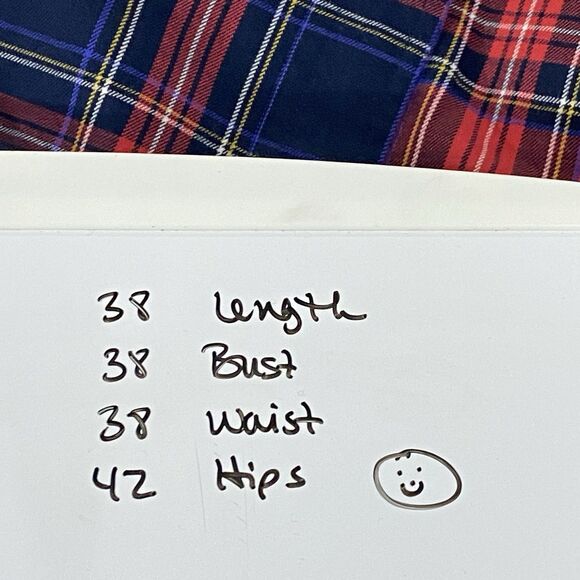 38 Length
38 Bust
38 Waist
42 Hips